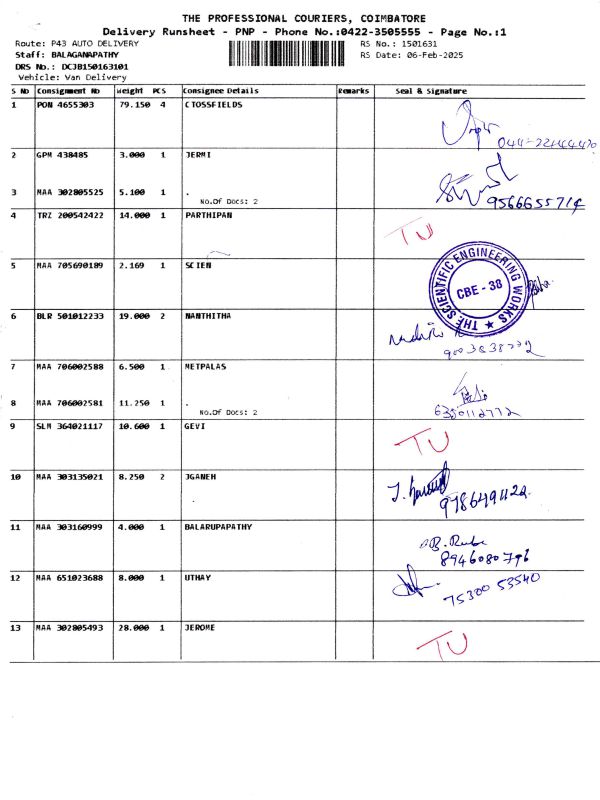 THE PROFESSIONAL COURIERS, COIMBATORE
Delivery Runsheet - PNP - Phone No.:0422-3505555 - Page No.:1
Route: P43 AUTO DELIVERY RS No.: 1501631
Staff: BALAGANAPATHY RS Date: 06-Feb-2025
DRS No.: DCJB150163101
Vehicle: Van Delivery
S No Consignment No Weight PCS Consignee Details Remarks Seal & Signature
1 PON 4655303 79.150 4 CTOSSFIELDS
2 GPM 438485 3.000 1 JERMI
3 MAA 302805525 5.100 1 .
No.Of Docs: 2
4 TRZ 200542422 14.000 1 PARTHIPAN
TU
5 MAA 705690189 2.169 1 SCIEN
THE SCIENTIFIC ENGINEERING WORKS
CBE - 38
6 BLR 501012233 19.000 2 NANTHITHA
9003838772
7 MAA 706002588 6.500 1 METPALAS
8 MAA 706002581 11.250 1 .
No.Of Docs: 2
6380112772
9 SLM 364021117 10.600 1 GEVI
TU
10 MAA 303135021 8.250 2 JGANEH
9786491122
11 MAA 303160999 4.000 1 BALARUPAPATHY
8946080796
12 MAA 651023688 8.000 1 UTHAY
75300 53540
13 MAA 302805493 28.000 1 JEROME
TU